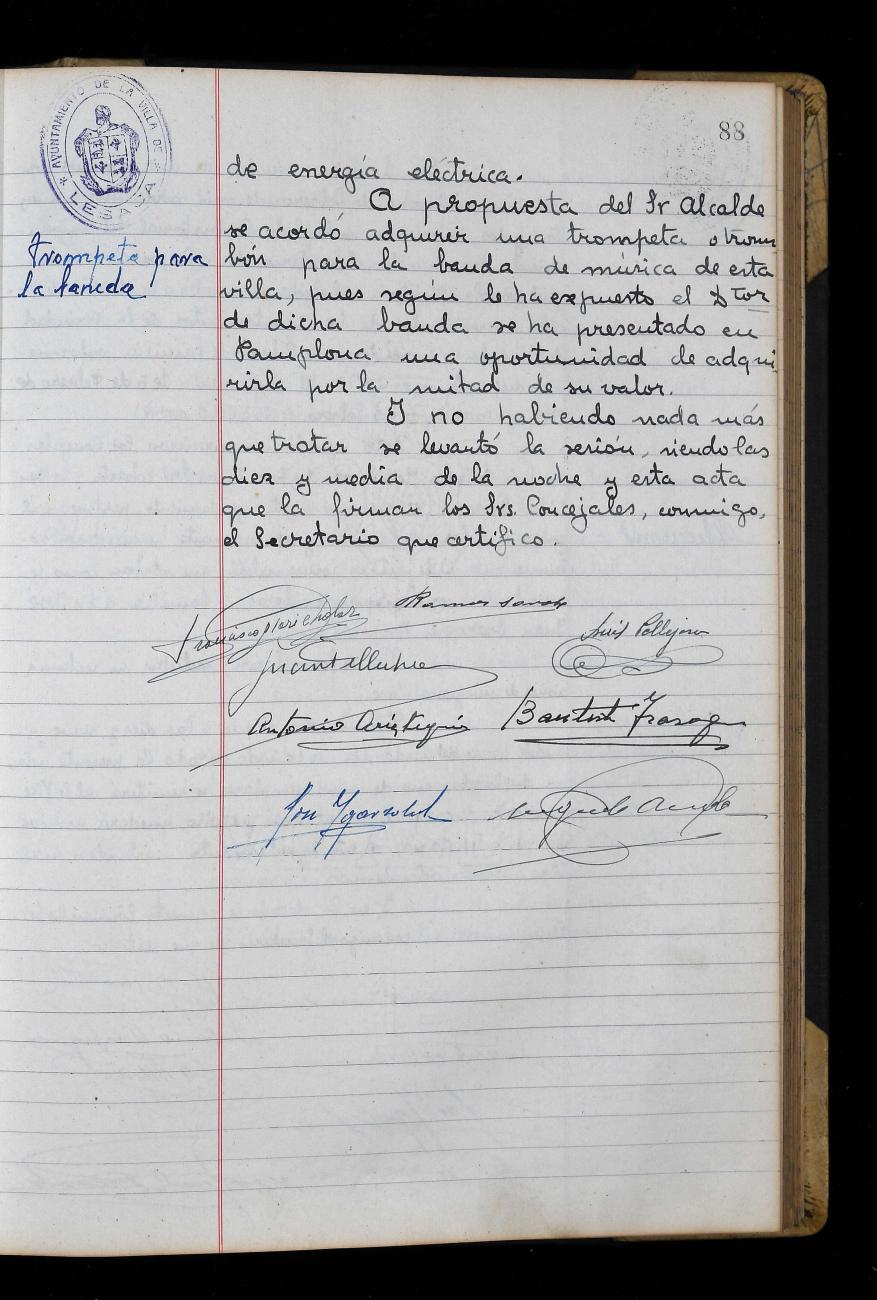 88
AYUNTAMIENTO DE LA VILLA DE
LESACA
de energía eléctrica.
A propuesta del Sr Alcalde
Trompeta para
la banda
se acordó adquirir una trompeta o trom
bón para la banda de música de esta
villa, pues según le ha expuesto el Dtor
de dicha banda se ha presentado en
Pamplona una oportunidad de adqui-
rirla por la mitad de su valor.
Y no habiendo nada más
que tratar se levantó la sesión, siendo las
diez y media de la noche y esta acta
que la firman los Srs. Concejales, conmigo,
el Secretario que certifico.
Francisco
Ramon
Luis Pellejero
Juan Tellechea
Antonio Ariztegui
Bautista